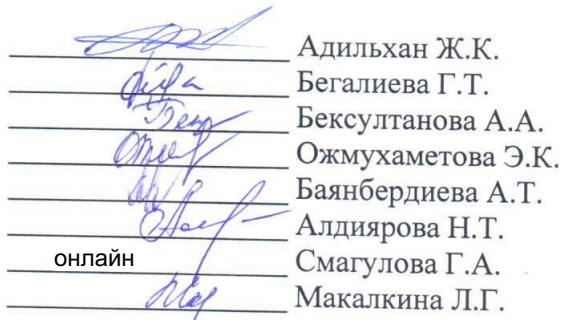 Адильхан Ж.К.
Бегалиева Г.Т.
Бексултанова А.А.
Ожмухаметова Э.К.
Баянбердиева А.Т.
Алдиярова Н.Т.
онлайн Смагулова Г.А.
Макалкина Л.Г.